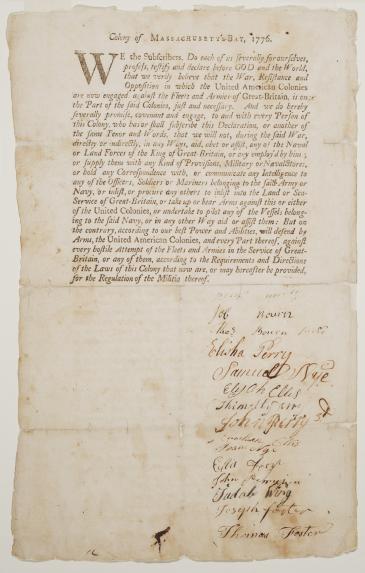 Colony of MASSACHUSETTS-BAY, 1776.
WE the Subscribers, Do each of us severally for ourselves,
profess, testify and declare before GOD and the World,
that we verily believe that the War, Resistance and
Opposition in which the United American Colonies
are now engaged against the Fleets and Armies of Great-Britain, is on
the Part of the said Colonies, just and necessary. And we do hereby
severally promise, covenant and engage, to and with every Person of
this Colony, who has or shall subscribe this Declaration, or another of
the same Tenor and Words, that we will not, during the said War,
directly or indirectly, in any Ways, aid, abet or assist, any of the Naval
or Land Forces of the King of Great-Britain, or any employ'd by him;
or supply them with any Kind of Provisions, Military or Naval Stores,
or hold any Correspondence with, or communicate any Intelligence to
any of the Officers, Soldiers or Mariners belonging to the said Army or
Navy, or inlist, or procure any others to inlist into the Land or Sea-
Service of Great-Britain, or take up or bear Arms against this or either
of the United Colonies, or undertake to pilot any of the Vessels belong-
ing to the said Navy, or in any other Way aid or assist them: But on
the contrary, according to our best Power and Abilities, will defend by
Arms, the United American Colonies, and every Part thereof, against
every hostile Attempt of the Fleets and Armies in the Service of Great-
Britain, or any of them, according to the Requirements and Directions
of the Laws of this Colony that now are, or may hereafter be provided,
for the Regulation of the Militia thereof.
Bourn
Bourn
Elisha Perry
Samuel Nye
Elijah Ellis
John Perry 3d
Ellis
John
Judah Wing
Joseph Foster
Thomas Foster